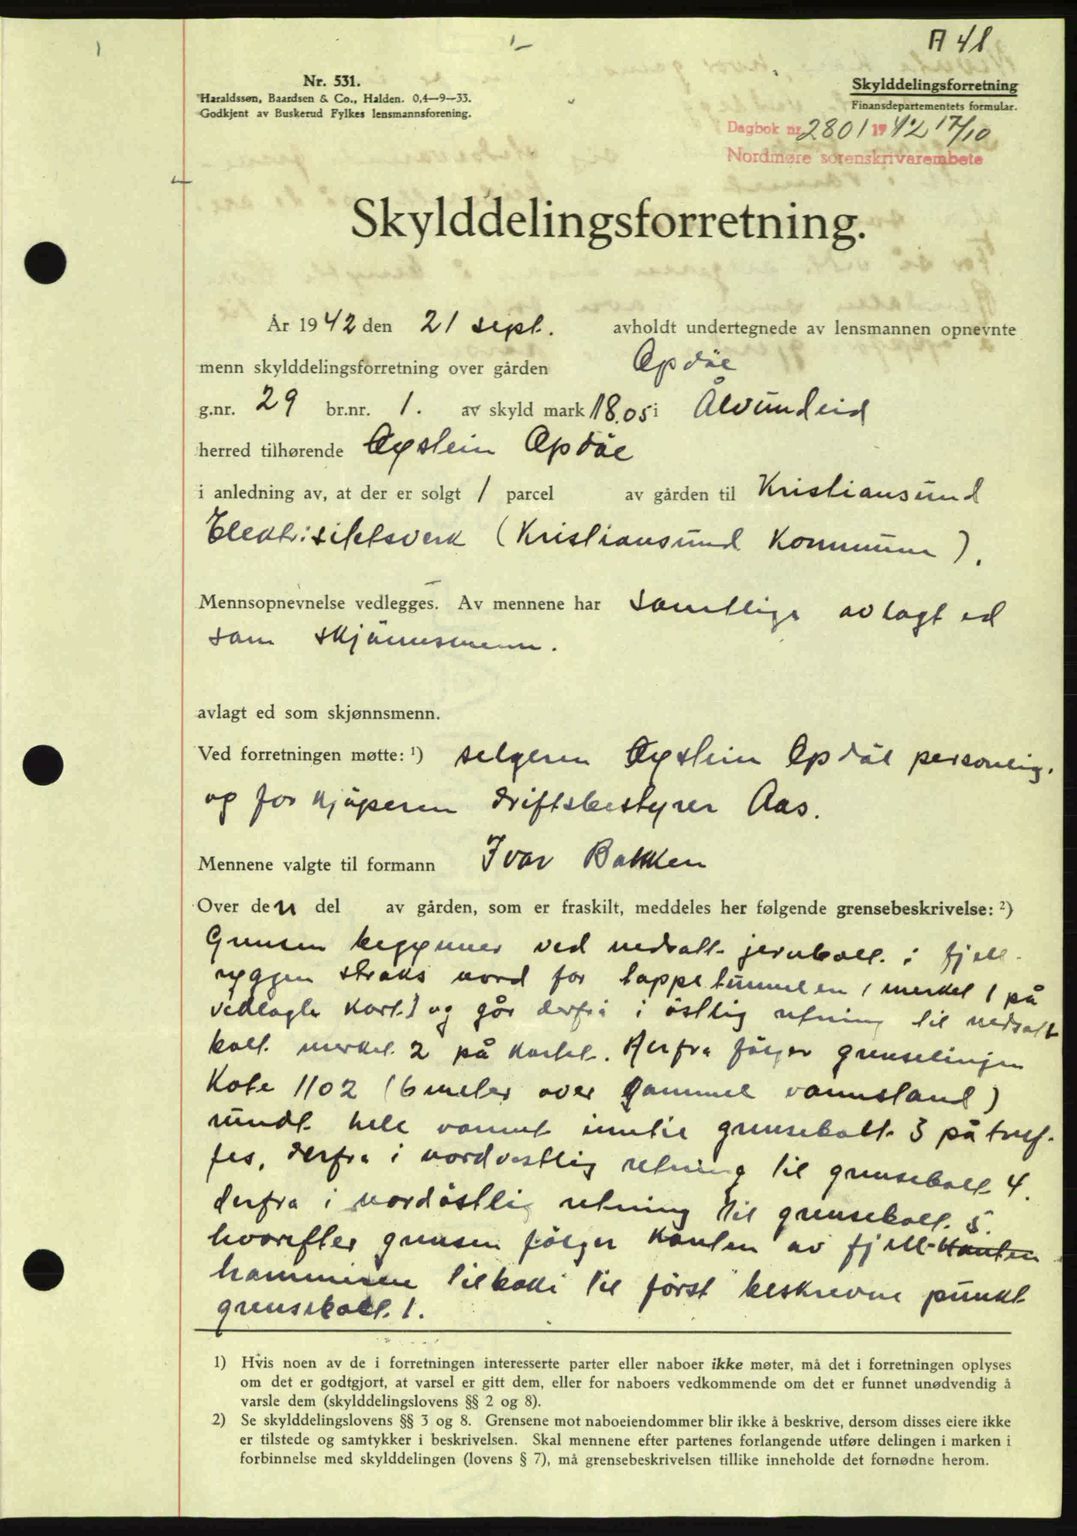 A 48
Nr. 531.
Haraldssen, Baardsen & Co., Halden. 0,4—9—33.
Godkjent av Buskerud Fylkes lensmannsforening.
Skylddelingsforretning
Finansdepartementets formular.
Dagbok nr. 2801 1942 17/10
Nordmøre sorenskrivarembete
Skylddelingsforretning.
År 1942 den 21 sept. avholdt undertegnede av lensmannen opnevnte
menn skylddelingsforretning over gården Opdöl
g.nr. 29 br.nr. 1. av skyld mark 18.05 i Ålvundeid
herred tilhørende Øystein Opdöl
i anledning av, at der er solgt 1 parcel av gården til Kristiansund
Elektrisitetsverk (Kristiansund Kommune).
Mennsopnevnelse vedlegges. Av mennene har samtlige avlagt ed
som skjönnsmenn.
avlagt ed som skjønnsmenn.
Ved forretningen møtte: ¹) selgeren Øystein Opdöl personlig.
og for kjöperen driftsbestyrer Aas.
Mennene valgte til formann Ivar Bakken
Over den del av gården, som er fraskilt, meddeles her følgende grensebeskrivelse: ²)
Grensen begynner ved nedsatt jernbolt i fjell-
ryggen straks nord for tappetunnelen (merket 1 på
vedlagte kart) og går derfra i östlig retning til nedsatt
bolt merket 2 på kartet. Herfra fölger grenselinjen
Kote 1102 (6 meter over gammel vannstand)
rundt hele vannet inntil grensebolt 3 på
derfra i nordvestlig retning til grensebolt 4.
derfra i nordöstlig retning til grensebolt 5.
hvorefter grensen fölger kanten av fjell-kanten
hammeren tilbake til först beskrevne punkt
grensebolt 1.
1) Hvis noen av de i forretningen interesserte parter eller naboer ikke møter, må det i forretningen oplyses
om det er godtgjort, at varsel er gitt dem, eller for naboers vedkommende om det er funnet unødvendig å
varsle dem (skylddelingslovens §§ 2 og 8).
2) Se skylddelingslovens §§ 3 og 8. Grensene mot naboeiendommer blir ikke å beskrive, dersom disses eiere ikke
er tilstede og samtykker i beskrivelsen. Skal mennene efter partenes forlangende utføre delingen i marken i
forbinnelse med skylddelingen (lovens § 7), må grensebeskrivelsen tillike inneholde det fornødne herom.